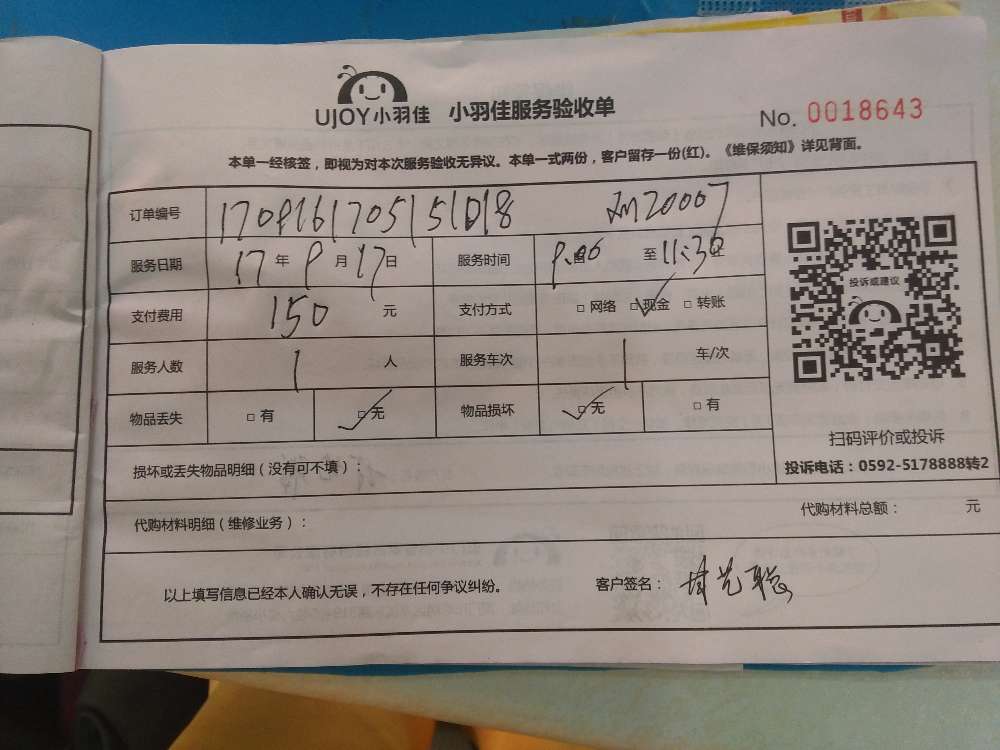 UJOY小羽佳 小羽佳服务验收单 No. 0018643
本单一经核签，即视为对本次服务验收无异议。本单一式两份，客户留存一份(红)。《维保须知》详见背面。
订单编号
服务日期 17 年 9 月 17 日 服务时间 至 11:30
支付费用 150 元 支付方式 □ 网络 ☑ 现金 □ 转账
服务人数 1 人 服务车次 1 车/次
物品丢失 □ 有 ☑ 无 物品损坏 ☑ 无 □ 有
投诉或建议
扫码评价或投诉
投诉电话：0592-5178888转2
损坏或丢失物品明细（没有可不填）：
代购材料明细（维修业务）： 代购材料总额： 元
以上填写信息已经本人确认无误，不存在任何争议纠纷。 客户签名：